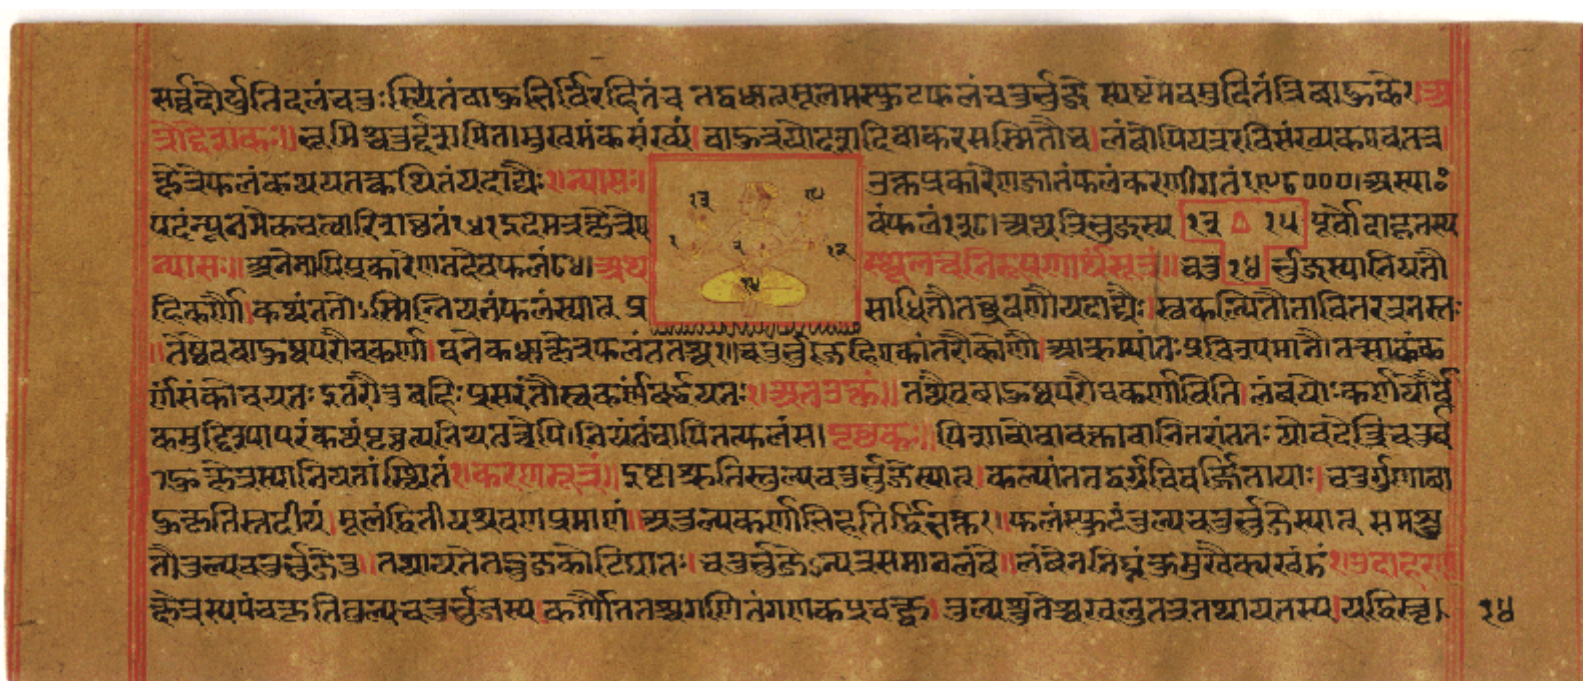 सर्वदोर्युतिदलंचतुःस्थितंबाहुभिर्विरहितंच तद्वधात्मूलमस्फुटफलंचतुर्भुजे स्पष्टमेवमुदितंत्रिबाहुके।अ
त्रोद्देशकः॥भूमिश्चतुर्दशमितामुखमंकसंख्यं।बाहूत्रयोदशदिवाकरसम्मितौच।लंबोपियत्ररविसंख्यकएवतत्र।
क्षेत्रेफलंकथयतत्कथितंयदाद्यैः।न्यासः। उक्तप्रकारेणजातंफलंकरणीगतं१९८०००।अस्याः
१३ १४ १ ९ १२ १४
पदंन्यूनमेकचत्वारिंशच्छतं१४१इदमत्रक्षेत्रेए वंफलं१३८।अथत्रिभुजस्य १३ १५ पूर्वोदाहृतस्य
न्यासः॥अनेनापिप्रकारेणतदेवफलं८४।अथ स्थूलत्वनिरूपणार्थंसूत्रं॥चतु १४ र्भुजस्यानियतौ
हिकर्णौ।कथंततोऽस्मिन्नियतंफलंस्यात् प्र साधितौतच्छ्रवणौयदाद्यैः।स्वकल्पितौतावितरत्रनस्तः
॥तेष्वेवबाहुष्वपरौचकर्णौ।अनेकधाक्षेत्रफलंततश्च॥चतुर्भुजेहिएकांतरौकोणौ।आक्रम्यांतःप्रविश्यमानौ।
र्णंसंकोचयतःइतरौतुबहिःप्रसरंतौस्वकर्णंवर्द्धयतः।अतउक्तं॥तेष्वेवबाहुष्वपरौचकर्णाविति।लंबयोःकर्णयोर्वै
कमुद्दिश्यापरंकथंपृच्छत्यनियतत्वेपि।नियतंचापितत्फलंस।पृच्छकः॥पिशाचोवावक्तावानितरांततःयोनवेत्तिचतुर्ब
हुक्षेत्रस्यानियतांस्थितिं।करणसूत्रं॥इष्टाश्रुतिस्तुल्यचतुर्भुजेस्यात्।कल्प्यांततद्वर्गविवर्जितायाः।चतुर्गुणाबा
हुकृतिस्तदीयं।मूलंद्वितीयश्रवणप्रमाणं।अतुल्यकर्णाभिहतिर्द्विभक्ता।फलंस्फुटंतुल्यचतुर्भुजेस्यात् समश्रु
तौतुल्यचतुर्भुजेतु।तथायतेतद्भुजकोटिघातः।चतुर्भुजेऽन्यत्रसमानलंबे॥लंबेननिघ्नंकुमुखैक्यखंडं।उदाहरणं
क्षेत्रस्यपंचकृतितुल्यचतुर्भुजस्य।कर्णौततश्चगणितंगणकप्रचक्ष्व।तुल्यश्रुतेश्चखलुतत्रतथायतस्य।यद्विस्तृ। १४